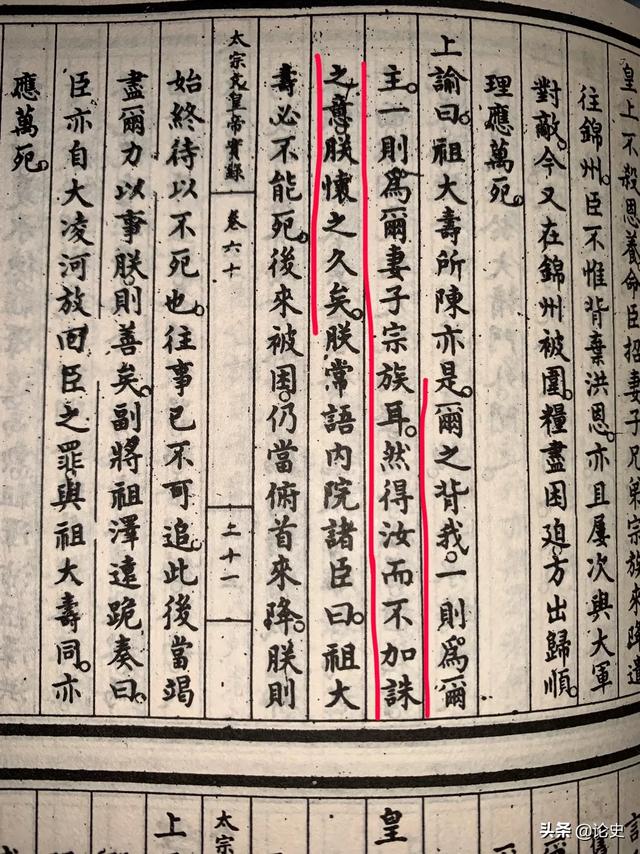 皇上不殺恩養命臣招妻子兄弟宗族來降遣
往錦州。臣不惟背棄洪恩。亦且屢次與大軍
對敵。今又在錦州被圍。糧盡困迫。方出歸順。
理應萬死。
上諭曰。祖大壽所陳亦是。爾之背我。一則爲爾
主。一則爲爾妻子宗族耳。然得汝而不加誅
之意。朕懷之久矣。朕常語內院諸臣曰。祖大
壽必不能死。後來被困。仍當俯首來降。朕則
太宗文皇帝實錄 卷六十 二十一
始終待以不死也。往事已不可追。此後當竭
盡爾力以事朕。則善矣。副將祖澤遠跪奏曰。
臣亦自大凌河放回。臣之罪與祖大壽同。亦
應萬死。
皇
太宗
上
头条 @论史